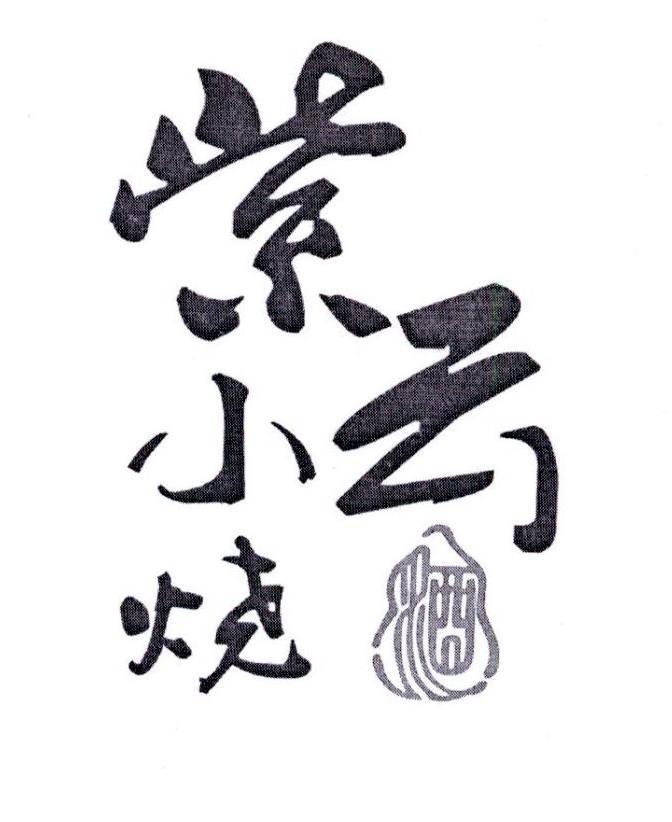 紫云
小烧
酒